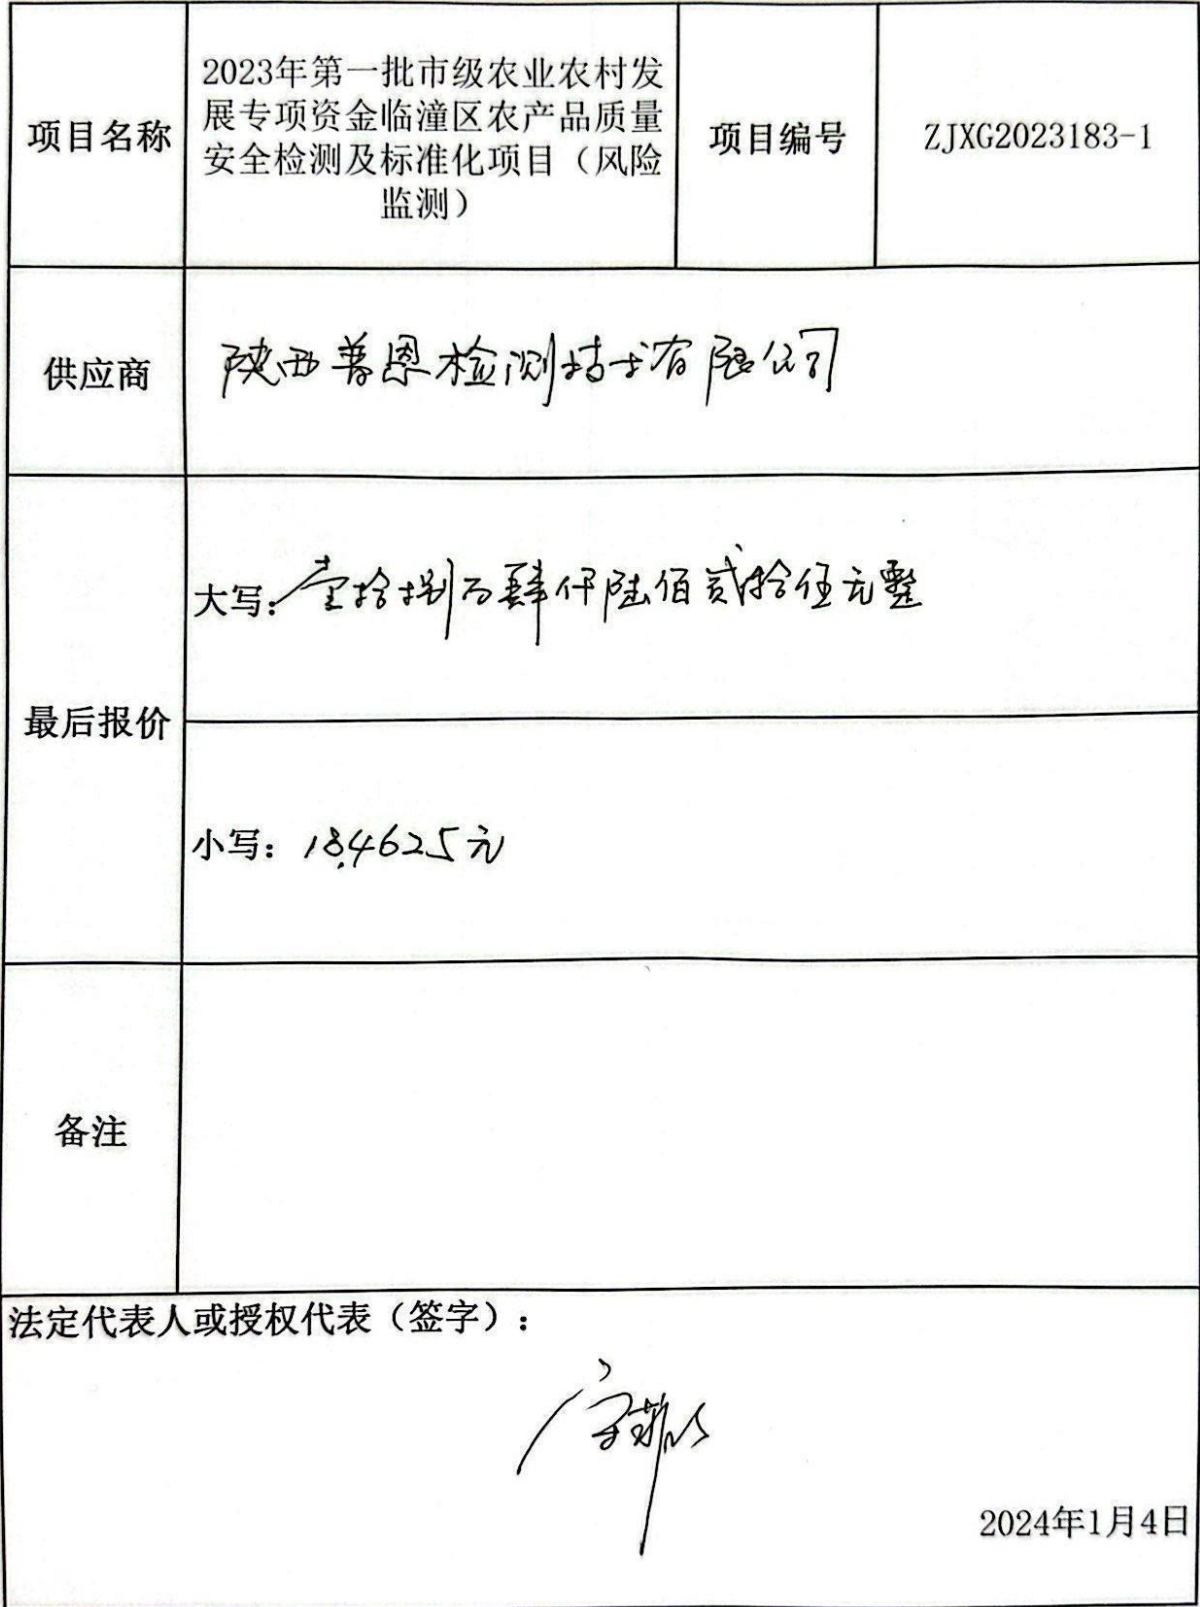 项目名称
2023年第一批市级农业农村发
展专项资金临潼区农产品质量
安全检测及标准化项目（风险
监测）
项目编号
ZJXG2023183-1
供应商
陕西普恩检测技术有限公司
最后报价
大写：壹拾捌万肆仟陆佰贰拾伍元整
小写：184625元
备注
法定代表人或授权代表（签字）：
2024年1月4日